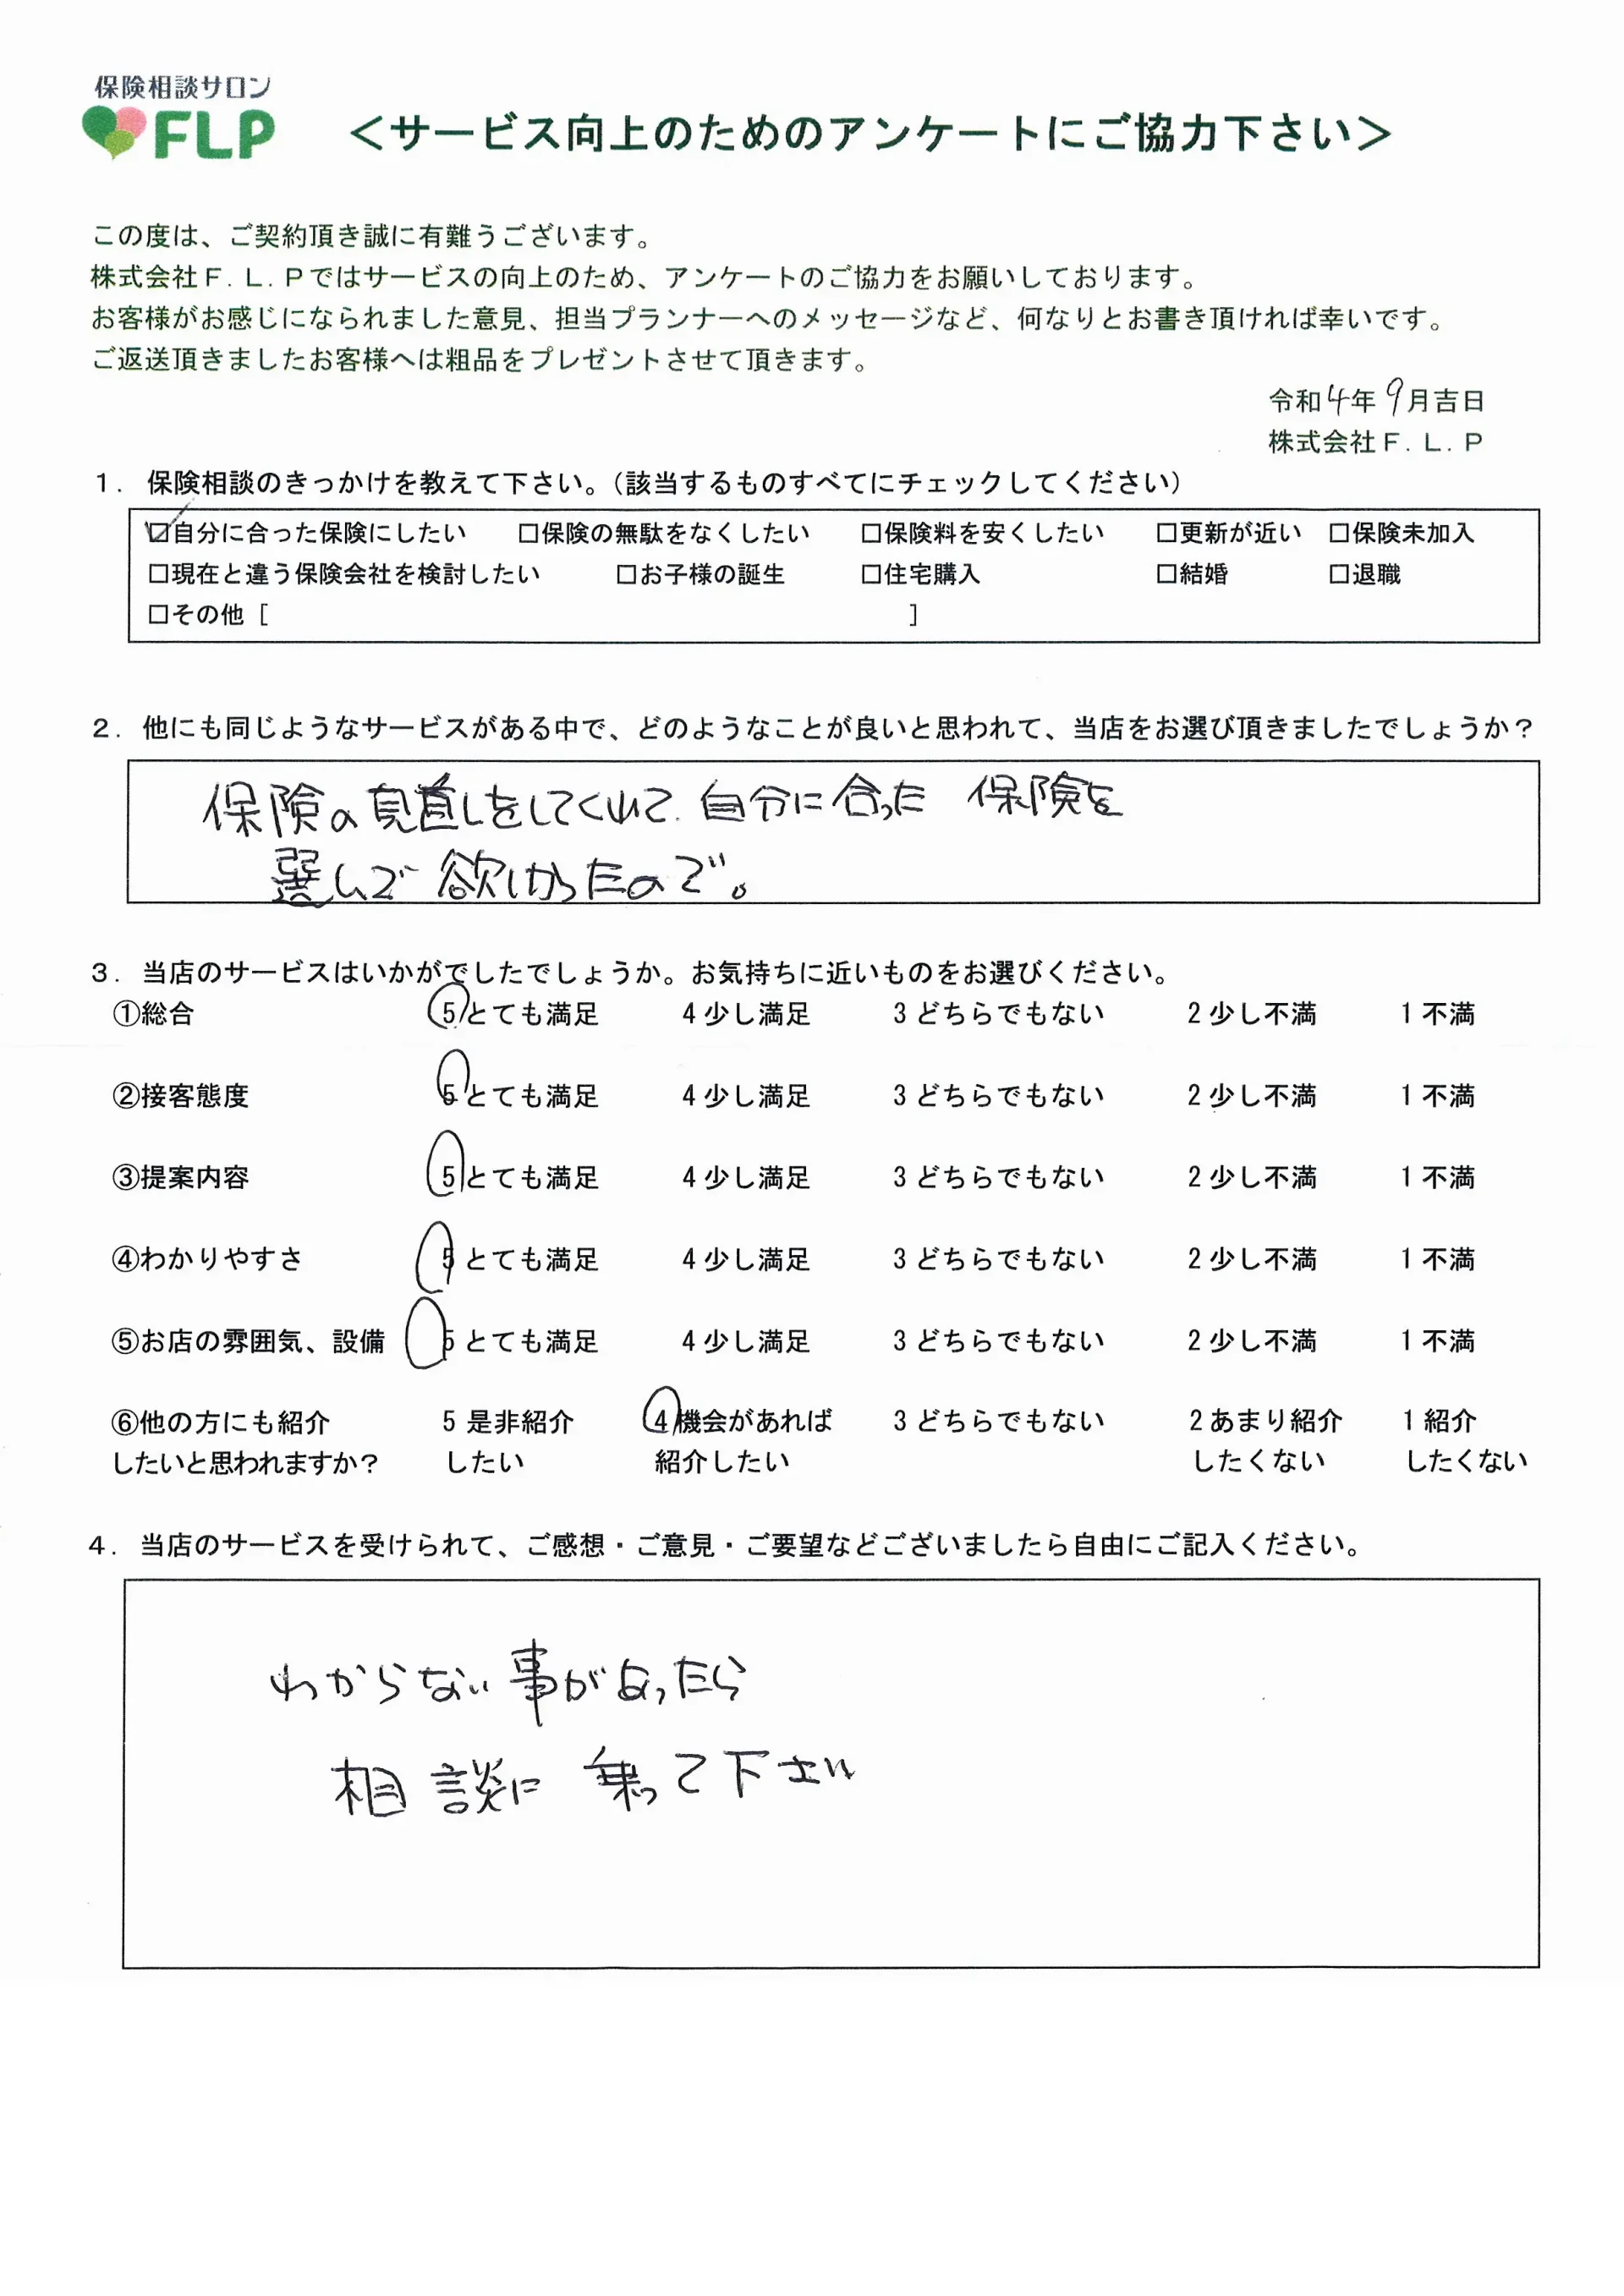 保険相談サロン
FLP
＜サービス向上のためのアンケートにご協力下さい＞
この度は、ご契約頂き誠に有難うございます。
株式会社Ｆ.Ｌ.Ｐではサービスの向上のため、アンケートのご協力をお願いしております。
お客様がお感じになられました意見、担当プランナーへのメッセージなど、何なりとお書き頂ければ幸いです。
ご返送頂きましたお客様へは粗品をプレゼントさせて頂きます。
令和4年9月吉日
株式会社Ｆ.Ｌ.Ｐ
１. 保険相談のきっかけを教えて下さい。（該当するものすべてにチェックしてください）
☑自分に合った保険にしたい □保険の無駄をなくしたい □保険料を安くしたい □更新が近い □保険未加入
□現在と違う保険会社を検討したい □お子様の誕生 □住宅購入 □結婚 □退職
□その他［ ］
２. 他にも同じようなサービスがある中で、どのようなことが良いと思われて、当店をお選び頂きましたでしょうか？
保険の見直しをしてくれて、自分に合った 保険を
選んで欲しかったので。
３. 当店のサービスはいかがでしたでしょうか。お気持ちに近いものをお選びください。
①総合 5 とても満足 4 少し満足 3 どちらでもない 2 少し不満 1 不満
②接客態度 5 とても満足 4 少し満足 3 どちらでもない 2 少し不満 1 不満
③提案内容 5 とても満足 4 少し満足 3 どちらでもない 2 少し不満 1 不満
④わかりやすさ 5 とても満足 4 少し満足 3 どちらでもない 2 少し不満 1 不満
⑤お店の雰囲気、設備 5 とても満足 4 少し満足 3 どちらでもない 2 少し不満 1 不満
⑥他の方にも紹介 5 是非紹介 4 機会があれば 3 どちらでもない 2 あまり紹介 1 紹介
したいと思われますか？ したい 紹介したい したくない したくない
４. 当店のサービスを受けられて、ご感想・ご意見・ご要望などございましたら自由にご記入ください。
わからない事があったら
相談に 乗って下さい